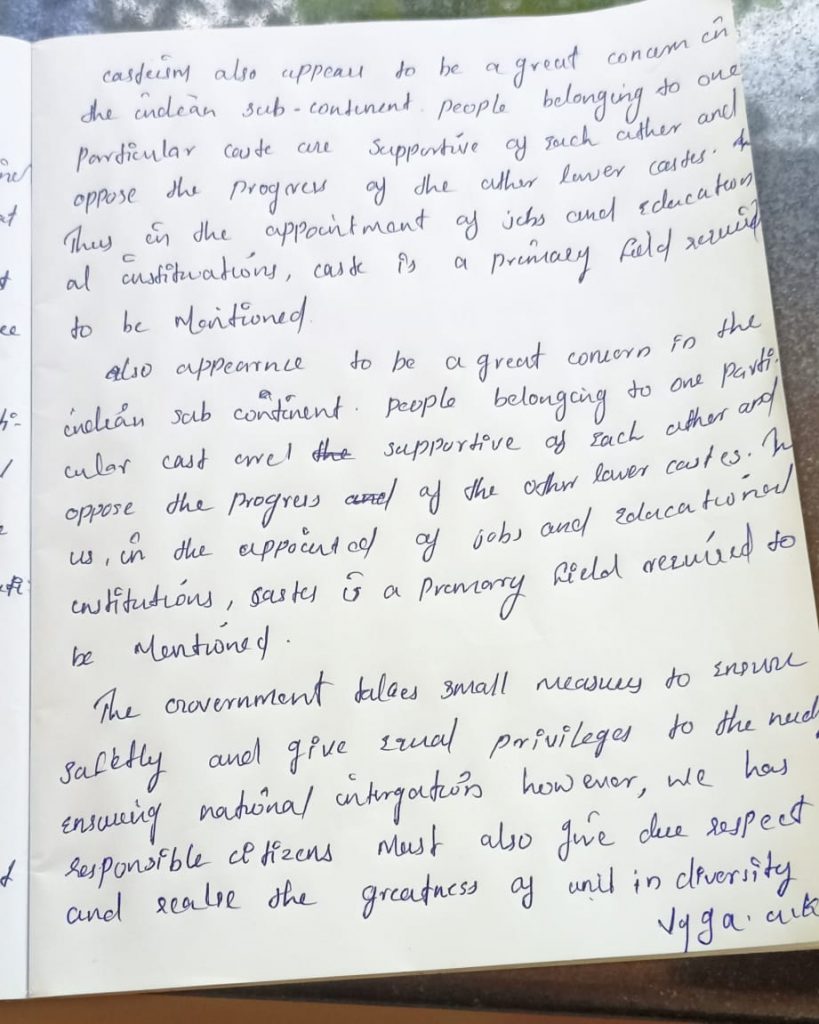 casteism also appears to be a great concern in
the indean sub-continent. people belonging to one
particular caste are supportive of each other and
oppose the progress of the other lower castes.
Thus in the appointment of jobs and education
al institutations, caste is a primary field required
to be Mentioned.
also appearnce to be a great concern in the
indean sub continent. people belonging to one parti.
cular cast the supportive of each other and
oppose the progress and of the other lower castes.
us, in the appointed of jobs and educational
institutions, castes is a premary field required to
be Mentioned.
The Government takes small measures to ensure
safetly and give equal privileges to the
ensuring national intirgation however, we has
responsible citizens Must also give due respect
and realse the greatness of unit in diversity
Vyga.
me
at
ee
hi-